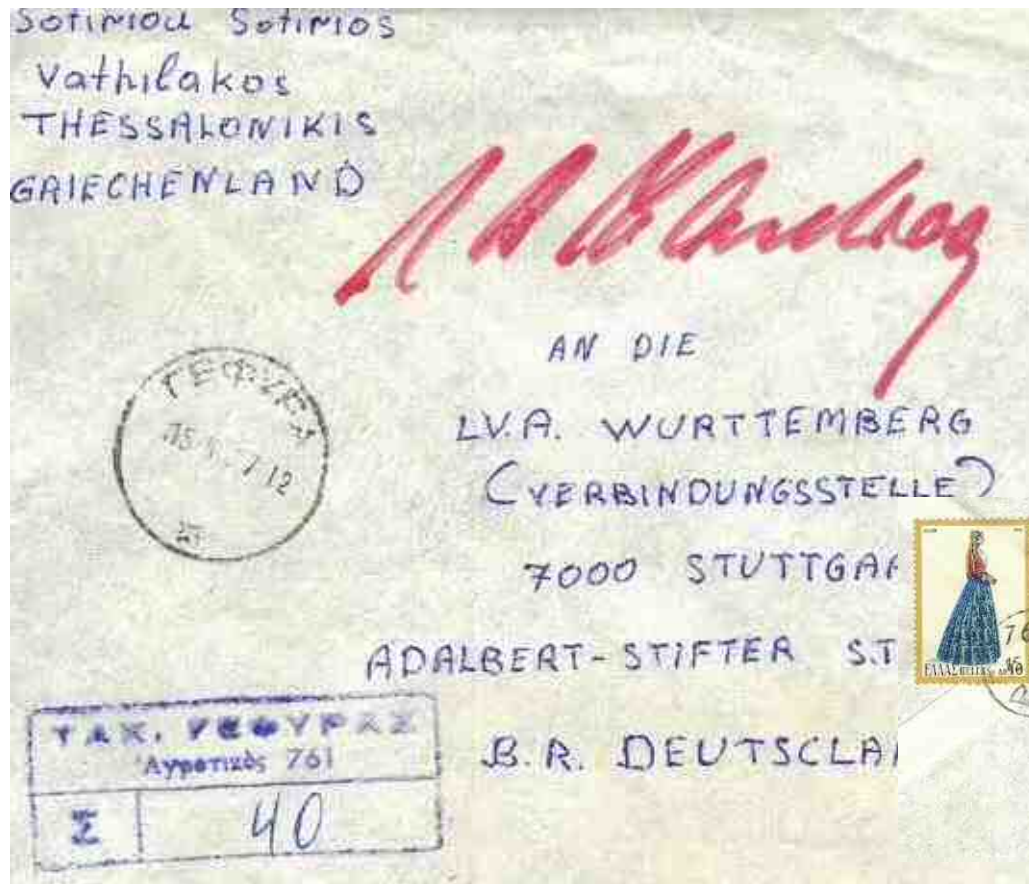 Sotiriou Sotirios
Vathilakos
THESSALONIKIS
GRIECHENLAND
AN DIE
LV.A. WURTTEMBERG
(VERBINDUNGSSTELLE)
7000 STUTTGAR
ADALBERT-STIFTER S.T
B.R. DEUTSCLA
ΓΕΦΥΡΑ
ΕΛΛΑΣ
76
ΤΑΧ. ΓΕΦΥΡΑΣ
Ἀγροτικὸς 761
Σ 40